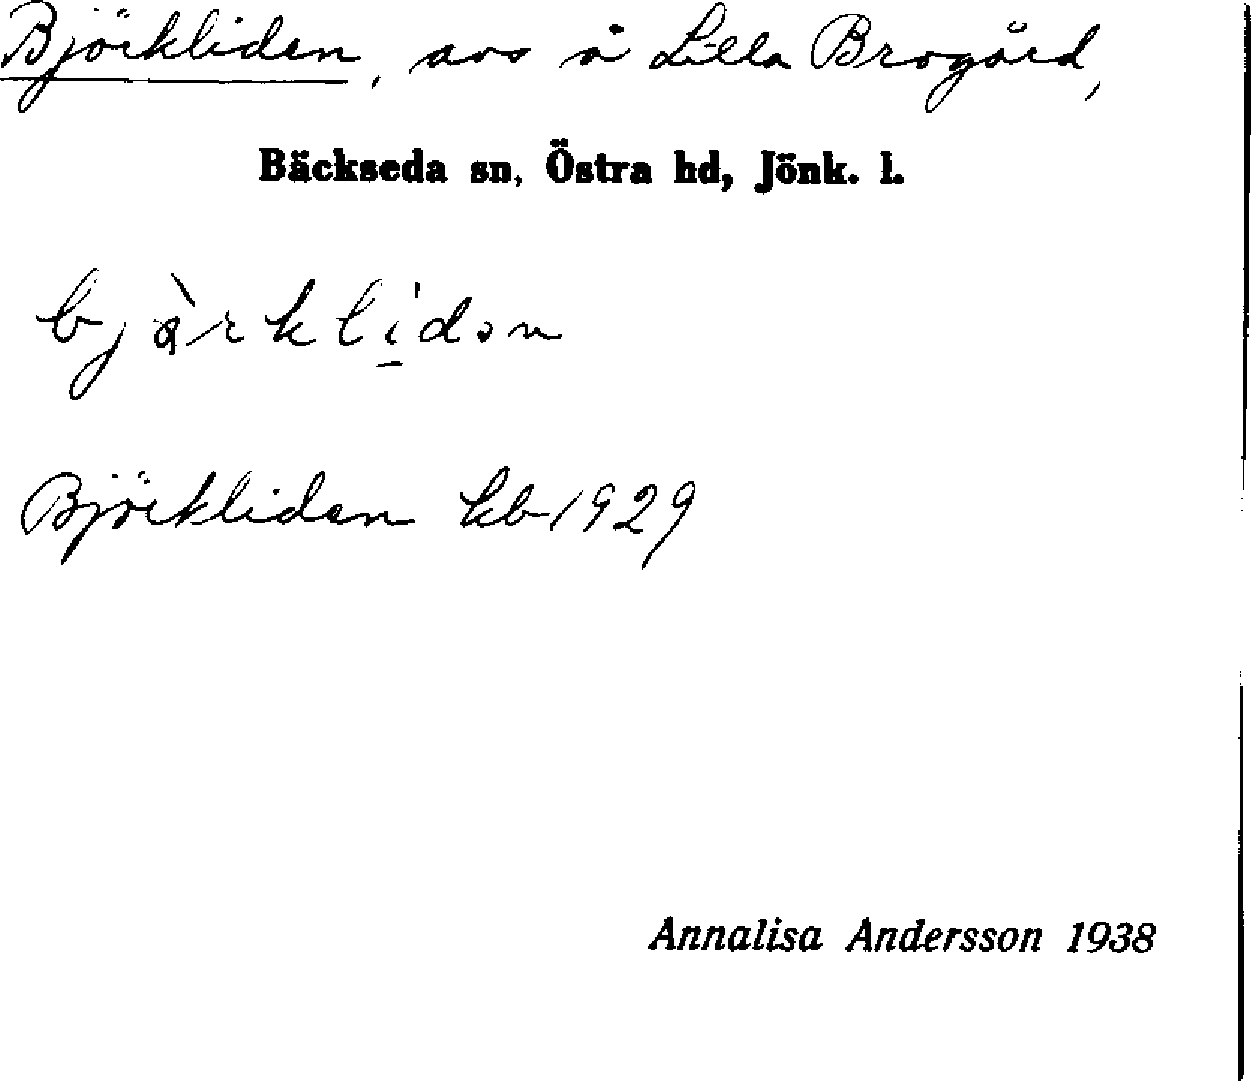 Björkliden, avs å Lilla Brogård,
Bäckseda sn, Östra hd, Jönk. l.
bjàrklidən
Björkliden kb 1929
Annalisa Andersson 1938